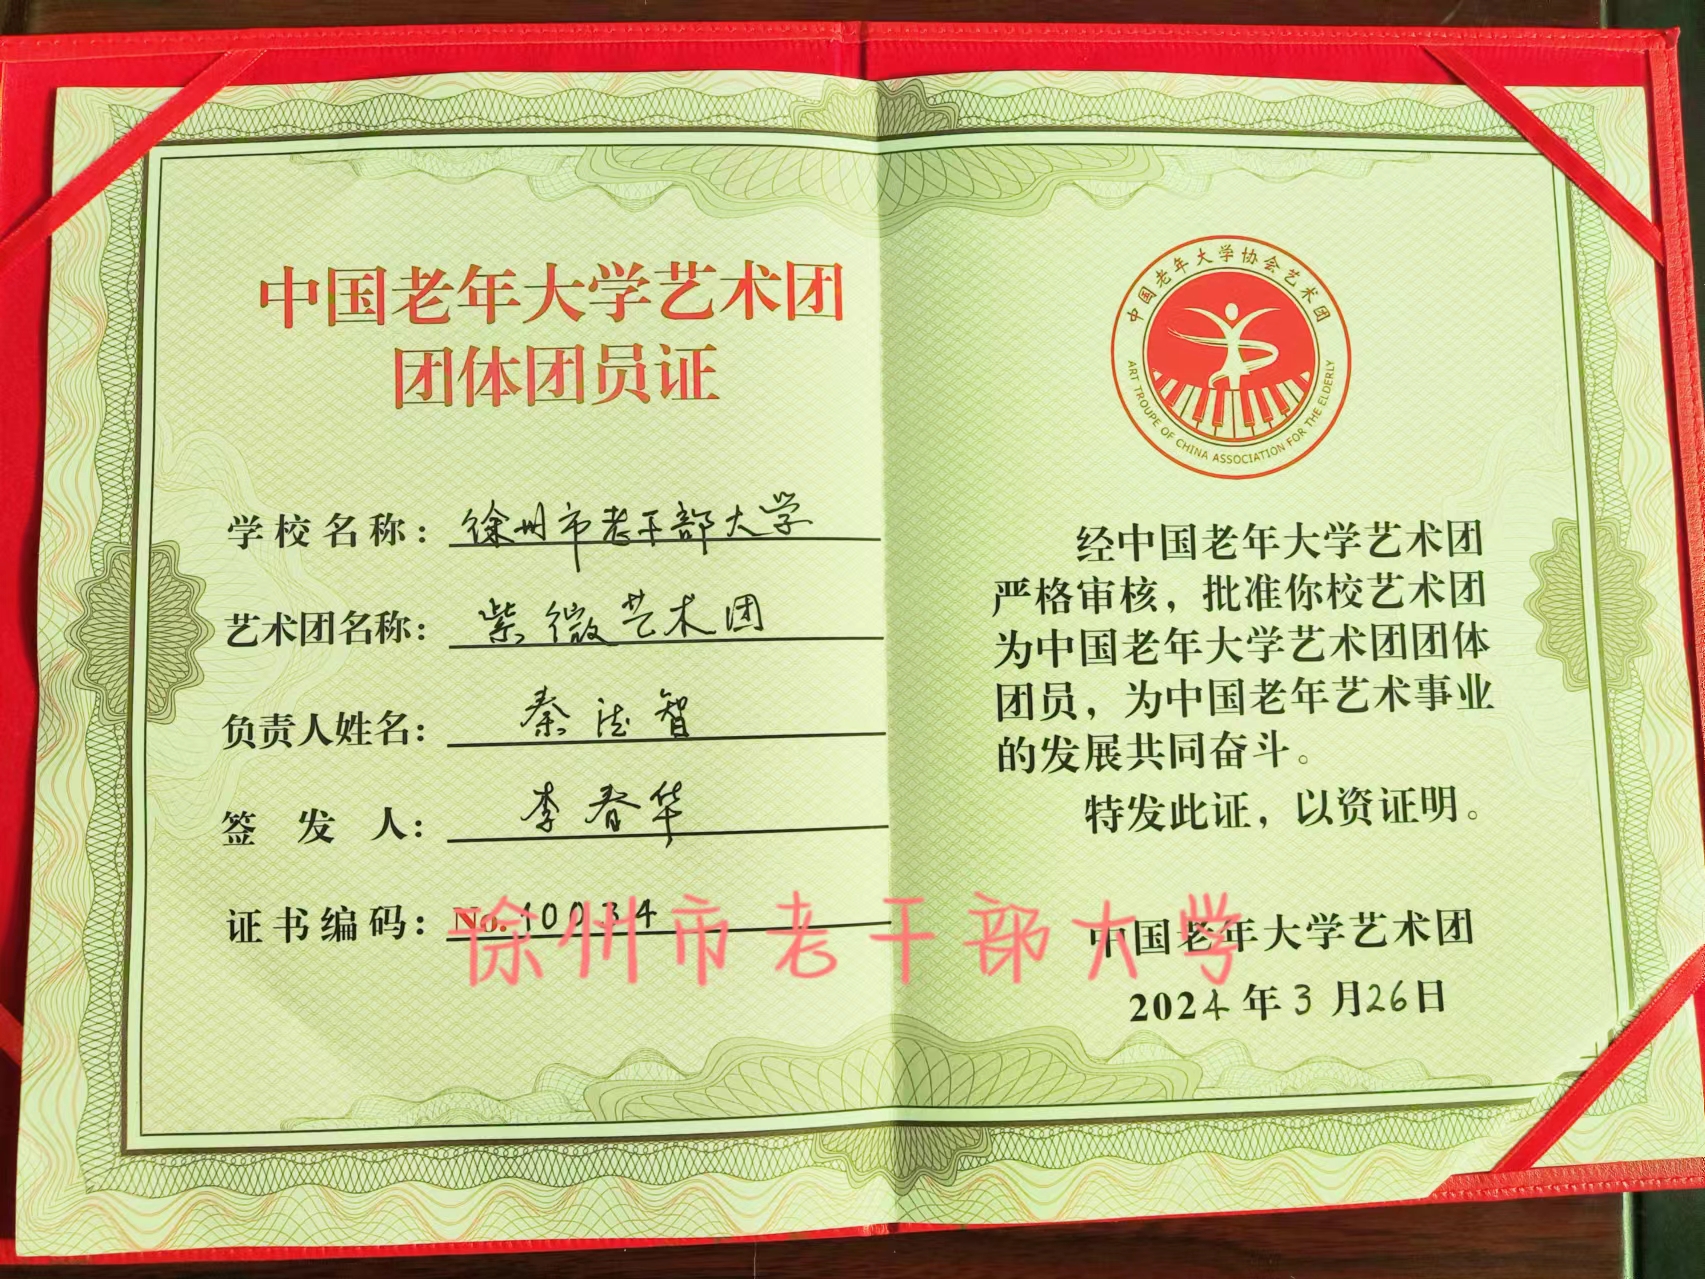 中国老年大学艺术团
团体团员证
学校名称：徐州市老干部大学
艺术团名称：紫薇艺术团
负责人姓名：秦德智
签发人：李春华
证书编码：No.10034
中国老年大学协会艺术团
ART TROUPE OF CHINA ASSOCIATION FOR THE ELDERLY
经中国老年大学艺术团
严格审核，批准你校艺术团
为中国老年大学艺术团团体
团员，为中国老年艺术事业
的发展共同奋斗。
特发此证，以资证明。
中国老年大学艺术团
2024年3月26日
徐州市老干部大学